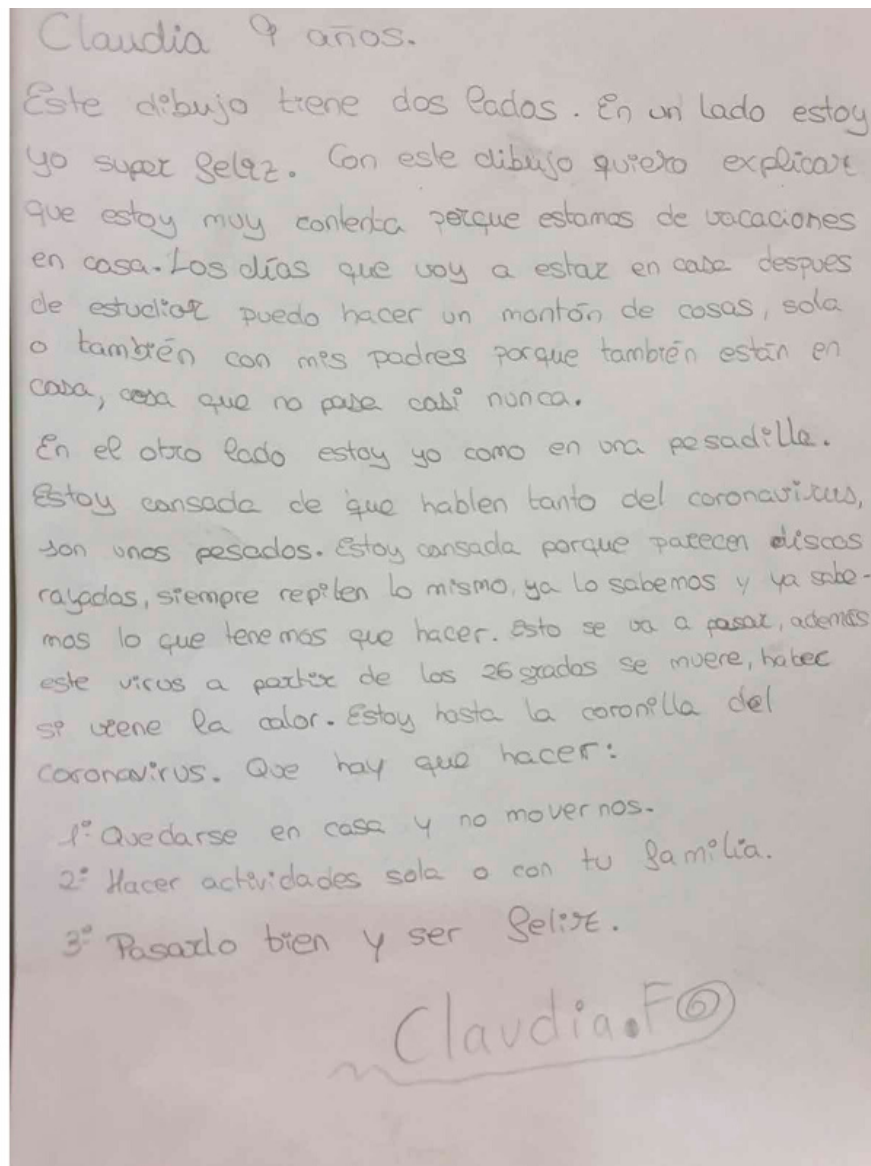 Claudia 9 años.
Este dibujo tiene dos lados. En un lado estoy
yo super feliz. Con este dibujo quiero explicar
que estoy muy contenta porque estamos de vacaciones
en casa. Los días que voy a estar en casa despues
de estudiar puedo hacer un montón de cosas, sola
o también con mis padres porque también están en
casa, cosa que no pasa casi nunca.
En el otro lado estoy yo como en una pesadilla.
Estoy cansada de que hablen tanto del coronavirus,
son unos pesados. Estoy cansada porque parecen discos
rayados, siempre repiten lo mismo, ya lo sabemos y ya sabe-
mos lo que tenemos que hacer. Esto se va a pasar, además
este virus a partir de los 26 grados se muere, haber
si viene la calor. Estoy hasta la coronilla del
coronavirus. Que hay que hacer:
1º Quedarse en casa y no movernos.
2º Hacer actividades sola o con tu familia.
3º Pasarlo bien y ser feliz.
Claudia.F